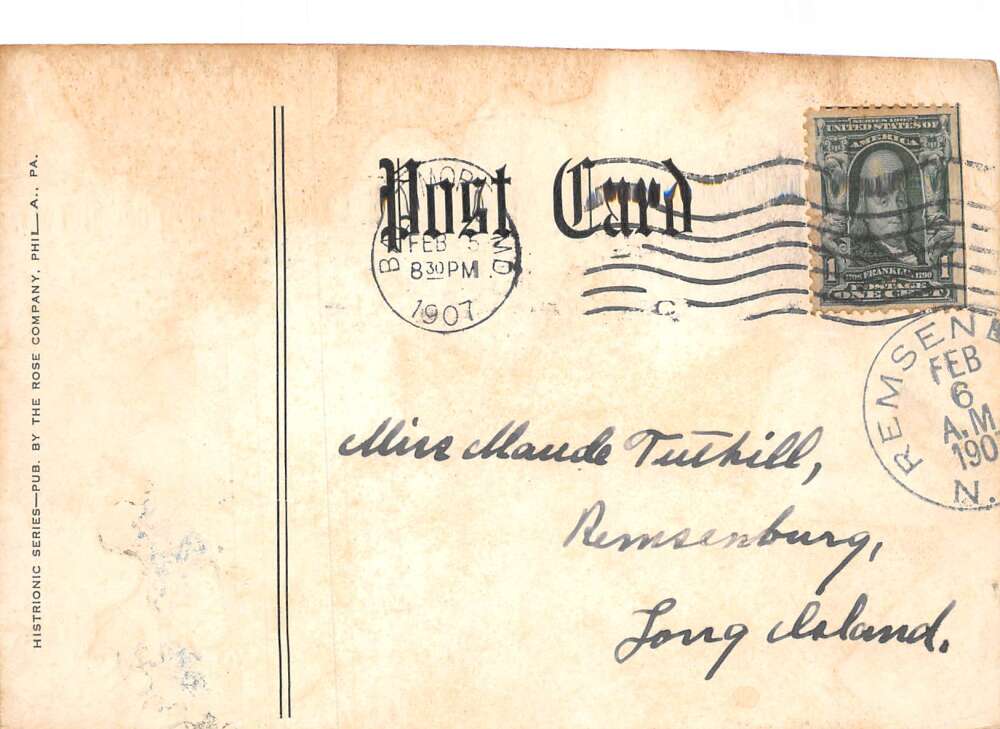 HISTRIONIC SERIES—PUB. BY THE ROSE COMPANY, PHILA., PA.
Post Card
BALTIMORE, MD.
FEB 5
8 30 PM
1907
C
SERIES 1902
UNITED STATES OF
AMERICA
1 FRANKLIN 1790 1
POSTAGE
ONE CENT
REMSENB
FEB
6
A.M
190
N.
Miss Maude Tuthill,
Remsenburg,
Long Island.